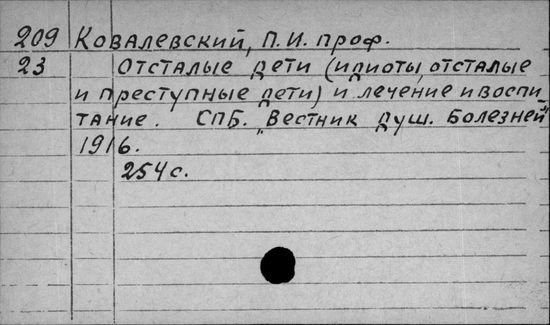 209 Ковалевский, П.И. проф.
23 Отсталые дети (идиоты, отсталые
и преступные дети) и лечение и воспи
тание. СПБ. „Вестник душ. Болезней"
1916.
254 с.